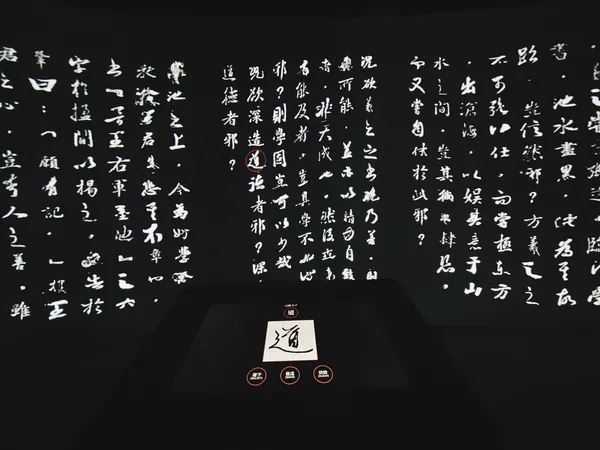 書，池水盡黑，此為其故
跡，豈信然邪？方羲之之
不可強以仕，而嘗極東方
，出滄海，以娛其意于山
水之間，豈其徜徉肆恣，
而又嘗自休於此邪？
況欲羲之之書晚乃善，則
其所能，蓋亦以精力自致
者，非天成也，然後世未
有能及者，豈其學不如彼
邪？則學固豈可以少哉
況欲深造道德者邪？深
道德者邪？
墨池之上，今為州學舍
教授王君盛恐其不章也，
書『晉王右軍墨池』之六
字於楹間以揭之，又告於
鞏曰：「願有記」。推王
君之心，豈愛人之善，雖
道